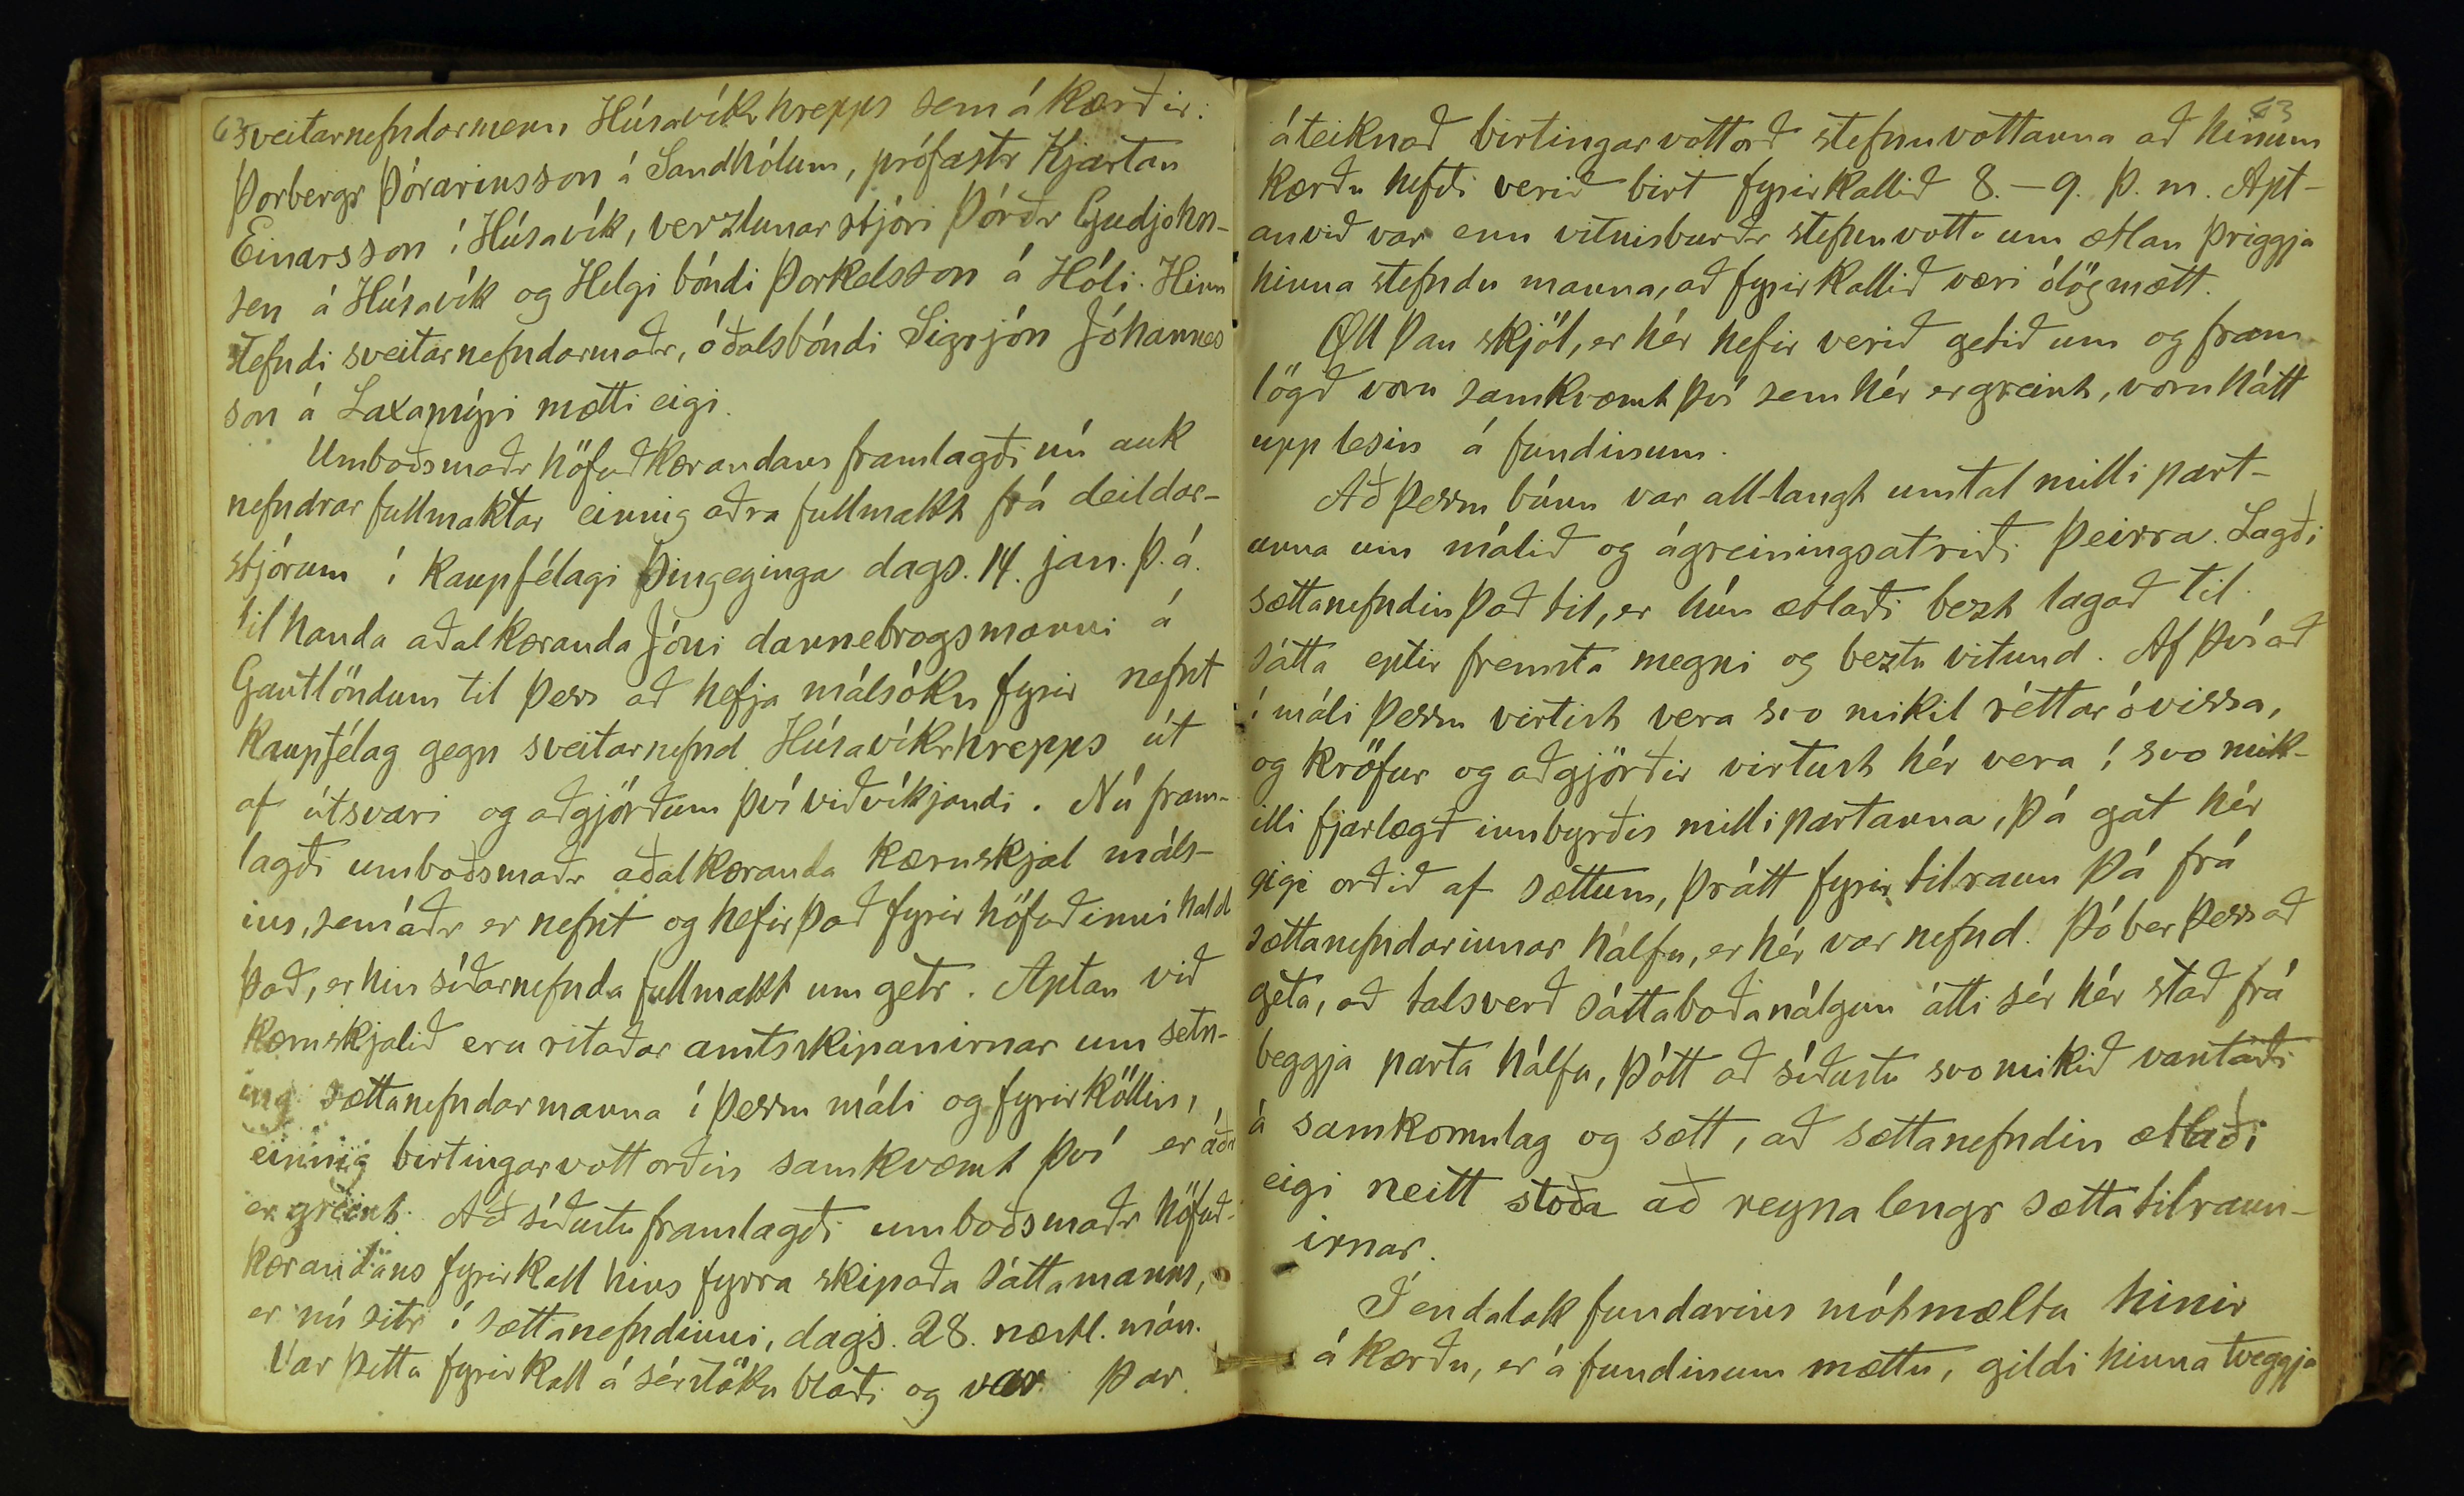 63
sveitarnefndarmenn Húsavíkrhrepps sem ákærðir:
Þorbergr Þórarinsson á Sandhólum, prófastr Kjartan
Einarsson í Húsavík, verzlunarstjóri Þórðr Gudjohn-
sen á Húsavík og Helgi bóndi Þorkelsson á Hóli. Hinn
stefndi sveitarnefndarmaðr, óðalsbóndi Sigrjón Jóhannes
son á Laxamýri mætti eigi.
Umboðsmaðr höfuðkærandans framlagði nú auk
nefndrar fullmaktar einnig aðra fullmakt frá deildar-
stjórum í kaupfélagi Þingeyinga dags. 14. jan. þ.á.
til handa aðalkæranda Jóni dannebrogsmanni á
Gautlöndum til þess að hefja málsókn fyrir nefnt
kaupfélag gegn sveitarnefnd Húsavíkrhrepps út
af útsvari og aðgjörðum því viðvíkjandi. Nú fram-
lagði umboðsmaðr aðalkæranda kæruskjal máls-
ins, sem áðr er nefnt og hefir það fyrir höfuðinnihald
það, er hin síðarnefnda fullmakt um getr. Aptan við
kæruskjalið eru ritaðar amtsskipanirnar um setn-
ing sættanefndarmanna í þessu máli og fyrirköllin,
einnig birtingarvottorðin samkvæmt því er áðr
er greint. Að síðustu framlagði umboðsmaðr höfuð-
kærandans fyrirkall hins fyrra skipaða sáttamanns,
er nú sitr í sættanefndinni, dags. 28. næstl. mán.
Var þetta fyrirkall á sérstöku blaði og var þar
63
áteiknað birtingarvottorð stefnuvottanna að hinum
kærðu hefði verið birt fyrirkallið 8.–9. þ. m. Apt-
anvið var enn vitnisburðr stefnuvotta um ætlan þriggja
hinna stefndu manna, að fyrirkallið væri ólögmætt.
Öll þau skjöl, er hér hefir verið getið um og fram
lögð voru samkvæmt því sem hér er greint, voru hátt
upp lesin á fundinum.
Að þessu búnu var all-langt umtal milli part-
anna um málið og ágreiningsatriði þeirra. Lagði
sættanefndin það til, er hún ætlaði bezt lagað til
sátta eptir fremsta megni og beztu vitund. Af því að
í máli þessu virtist vera svo mikil réttaróvissa,
og kröfur og aðgjörðir virtust hér vera í svo mik-
illi fjarlægð innbyrðis milli partanna, þá gat hér
eigi orðið af sættum, þrátt fyrir tilraun þá frá
sættanefndarinnar hálfu, er hér var nefnd. Þó ber þess að
geta, að talsverð sáttaboðanálgun átti sér hér stað frá
beggja parta hálfu, þótt að síðustu svo mikið vantaði
á samkomulag og sætt, að sættanefndin ætlaði
eigi neitt stoða að reyna lengr sættatilraun-
irnar.
Í endalok fundarins mótmæltu hinir
ákærðu, er á fundinum mættu, gildi hinna tveggja